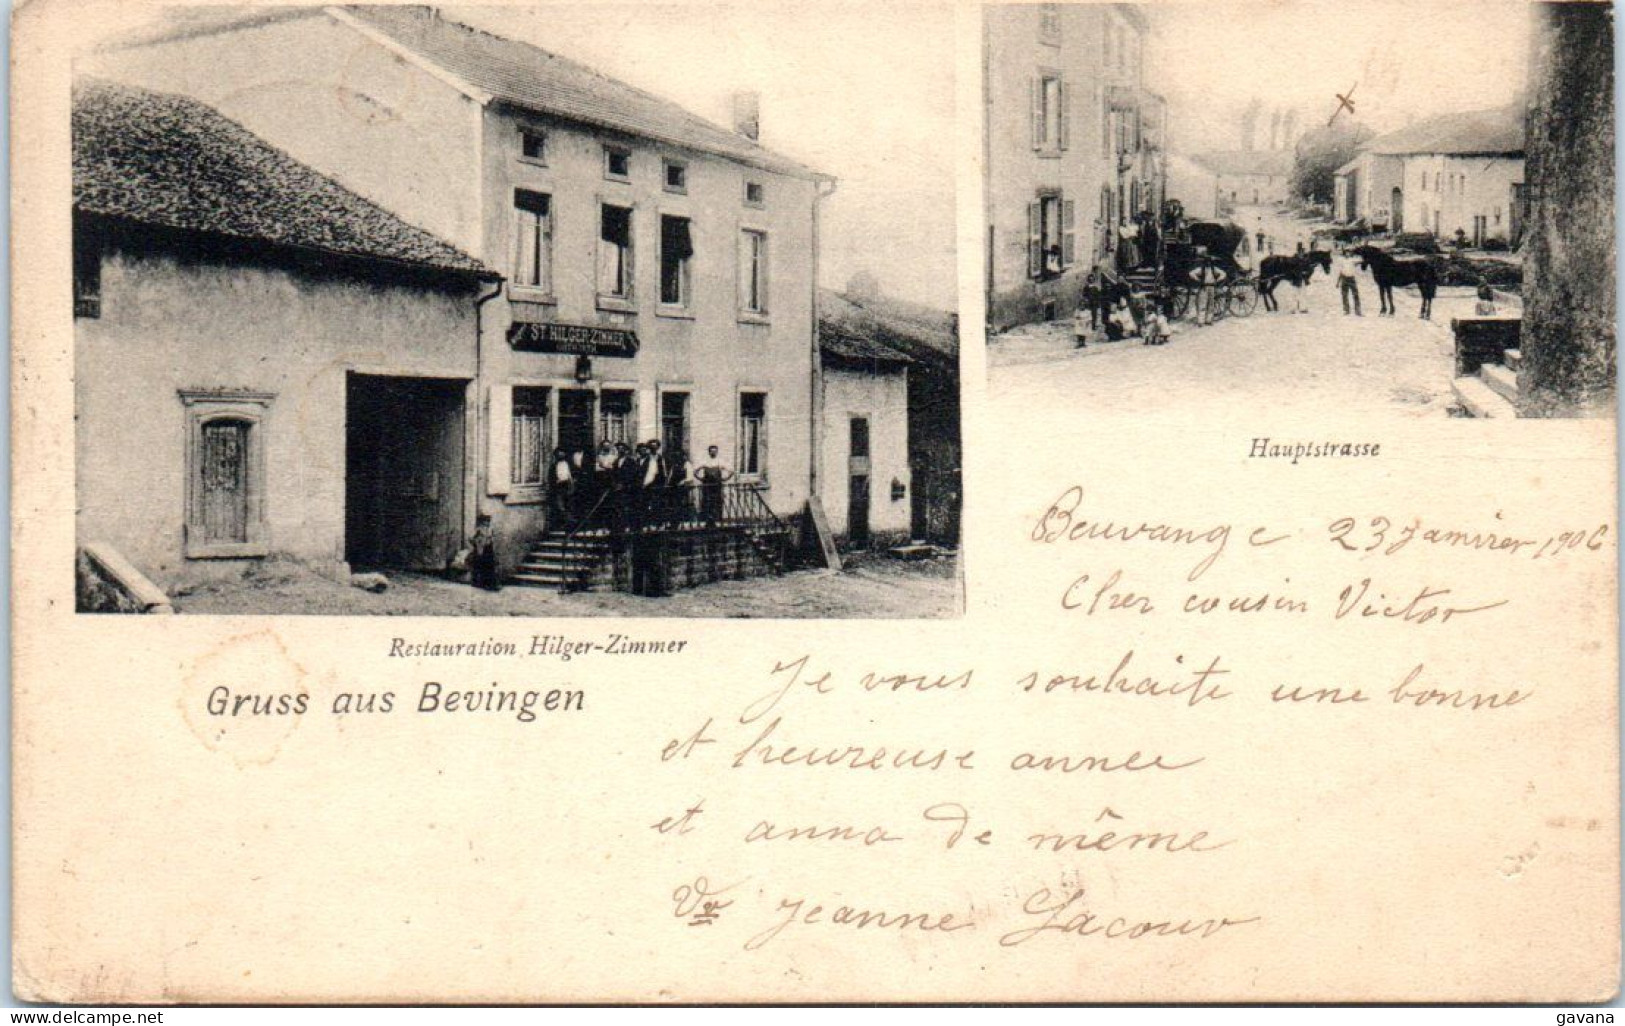 ST HILGER-ZIMMER
Hauptstrasse
Restauration Hilger-Zimmer
Gruss aus Bevingen
Beuvange 23 Janvier 1906
Cher cousin Victor
Je vous souhaite une bonne
et heureuse annee
et anna de même
Vve Jeanne Lacour
www.delcampe.net
gavana